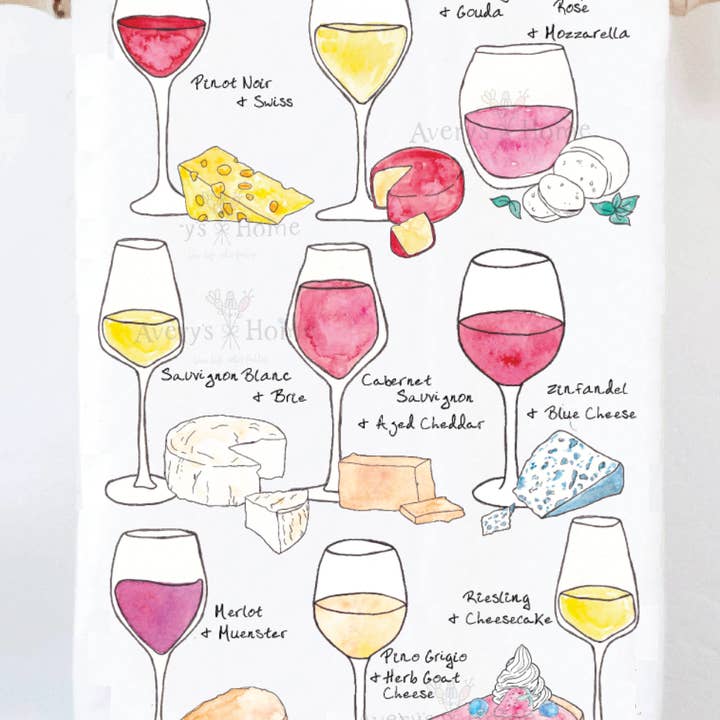 & Gouda
Rose
& Mozzarella
Pinot Noir
& Swiss
Avery's Home
ys Home
Avery's Home
Sauvignon Blanc
& Brie
Cabernet
Sauvignon
& Aged Cheddar
Zinfandel
& Blue Cheese
Merlot
& Muenster
Riesling
& Cheesecake
Pino Grigio
& Herb Goat
Cheese